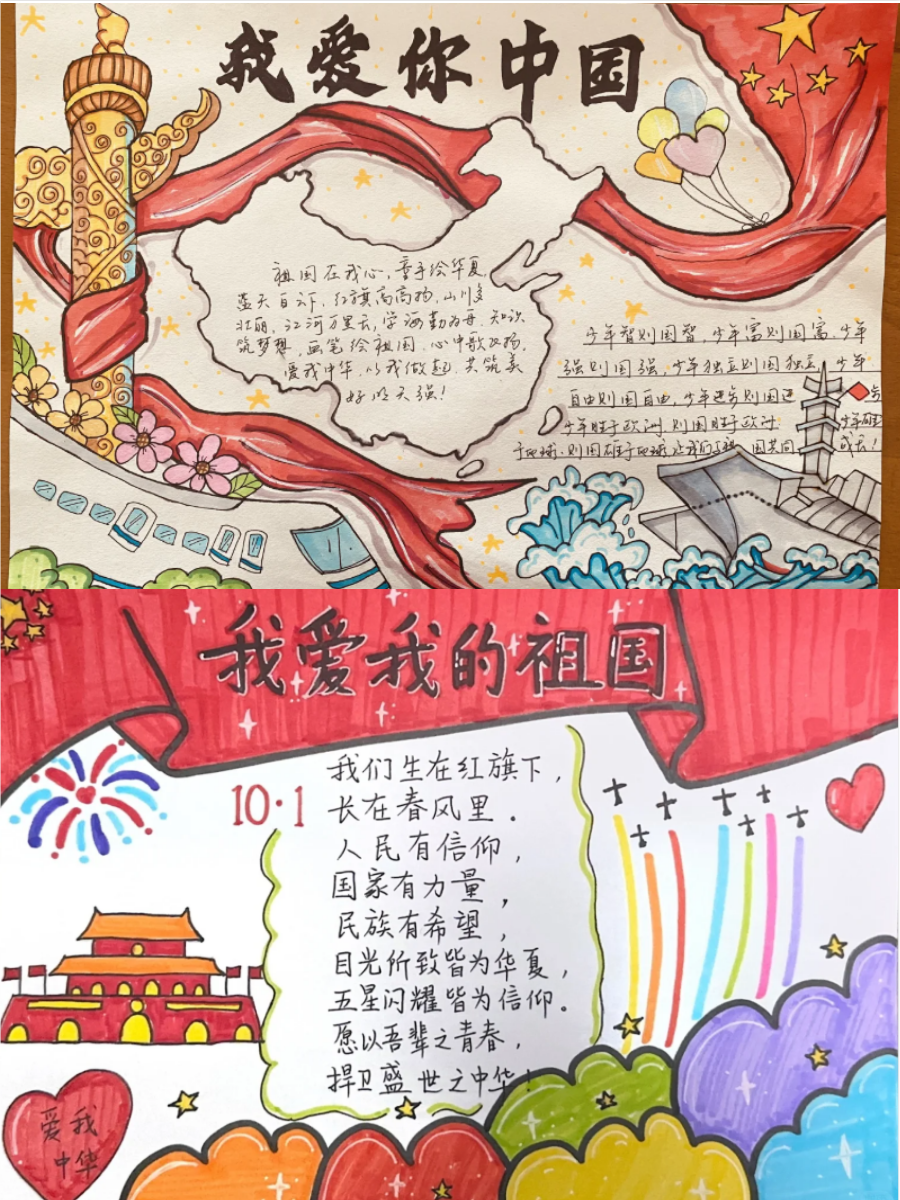 我爱你中国
祖国在我心,童手绘华夏,
蓝天白云下,红旗高高扬,山川多
壮丽,江河万里长,学海勤为舟,知识
筑梦想,画笔绘祖国,心中歌飞扬,
爱我中华,从我做起,共筑美
好明天强!
少年智则国智,少年富则国富,少年
强则国强,少年独立则国独立,少年
自由则国自由,少年进步则国进步
少年胜于欧洲,则国胜于欧洲,少年雄
于地球,则国雄于地球,让我们与祖国共同成长!
我爱我的祖国
10·1
我们生在红旗下,
长在春风里.
人民有信仰,
国家有力量,
民族有希望,
目光所致皆为华夏,
五星闪耀皆为信仰。
愿以吾辈之青春,
捍卫盛世之中华!
爱我
中华